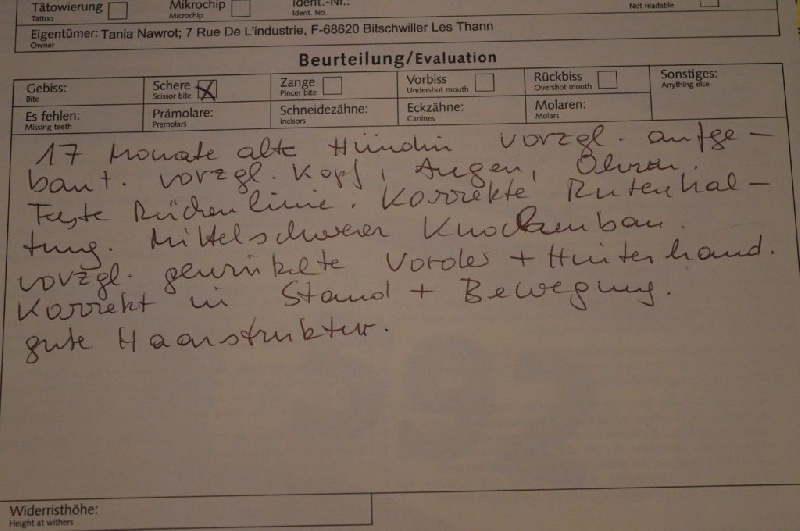 Tätowierung Mikrochip Ident.-Nr.:
Tattoo Microchip Ident. No. Not readable
Eigentümer: Tania Nawrot; 7 Rue De L'industrie, F-68620 Bitschwiller Les Thann
Owner
Beurteilung/Evaluation
Gebiss: Schere Zange Vorbiss Rückbiss Sonstiges:
Bite Scissor bite Pincer bite Undershot mouth Overshot mouth Anything else
Es fehlen: Prämolare: Schneidezähne: Eckzähne: Molaren:
Missing teeth Premolars Incisors Canines Molars
17 Monate alte Hündin vorzgl. aufge-
baut. vorzgl. Kopf, Augen, Ohren.
Feste Rückenlinie. Korrekte Rutenhal-
tung. Mittelschwerer Knochenbau.
vorzgl. gewinkelte Vorder + Hinterhand.
Korrekt in Stand + Bewegung.
gute Haarstruktur.
Widerristhöhe:
Height at withers